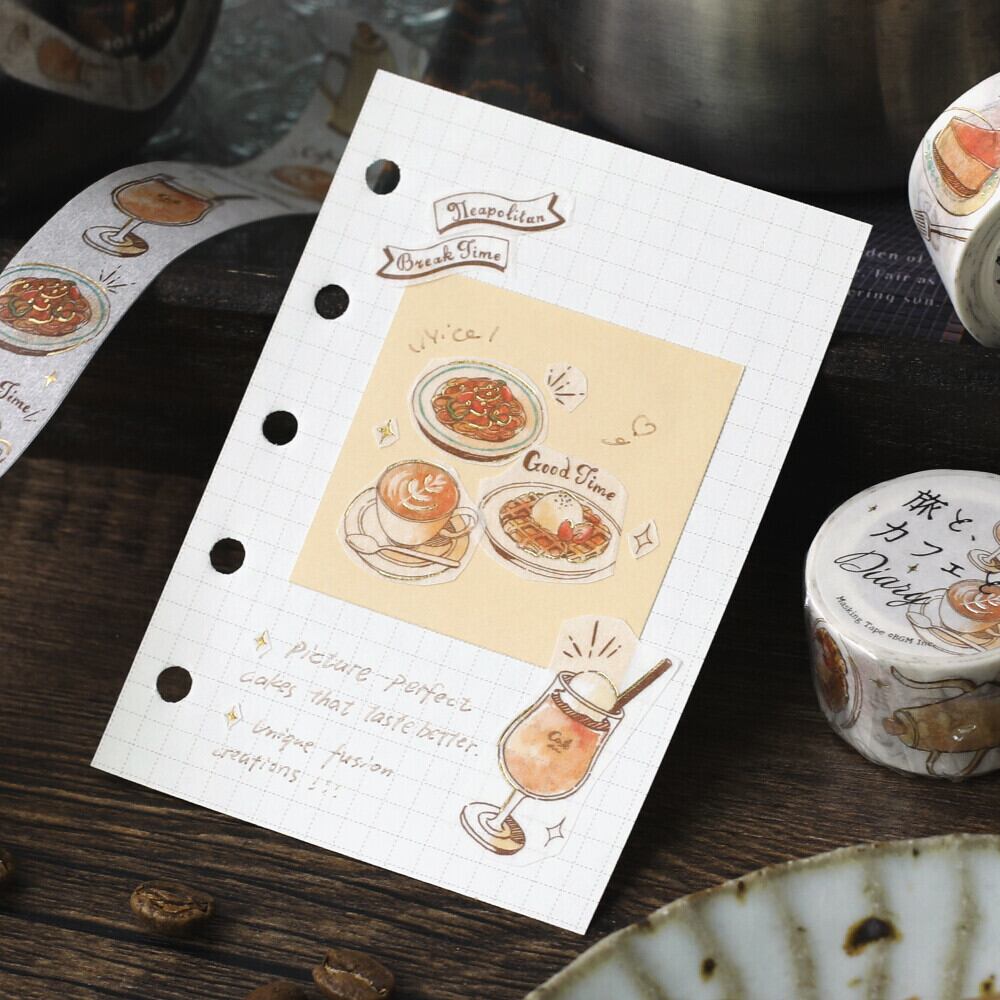 Neapolitan
Break Time
Nice!
Good Time
Picture perfect
cakes that taste better.
Unique fusion
creations!!!
Cafe
Time!
旅と、
カフェと
Diary
Masking Tape ©BGM Inc.
den of
Fair as
ering sun.